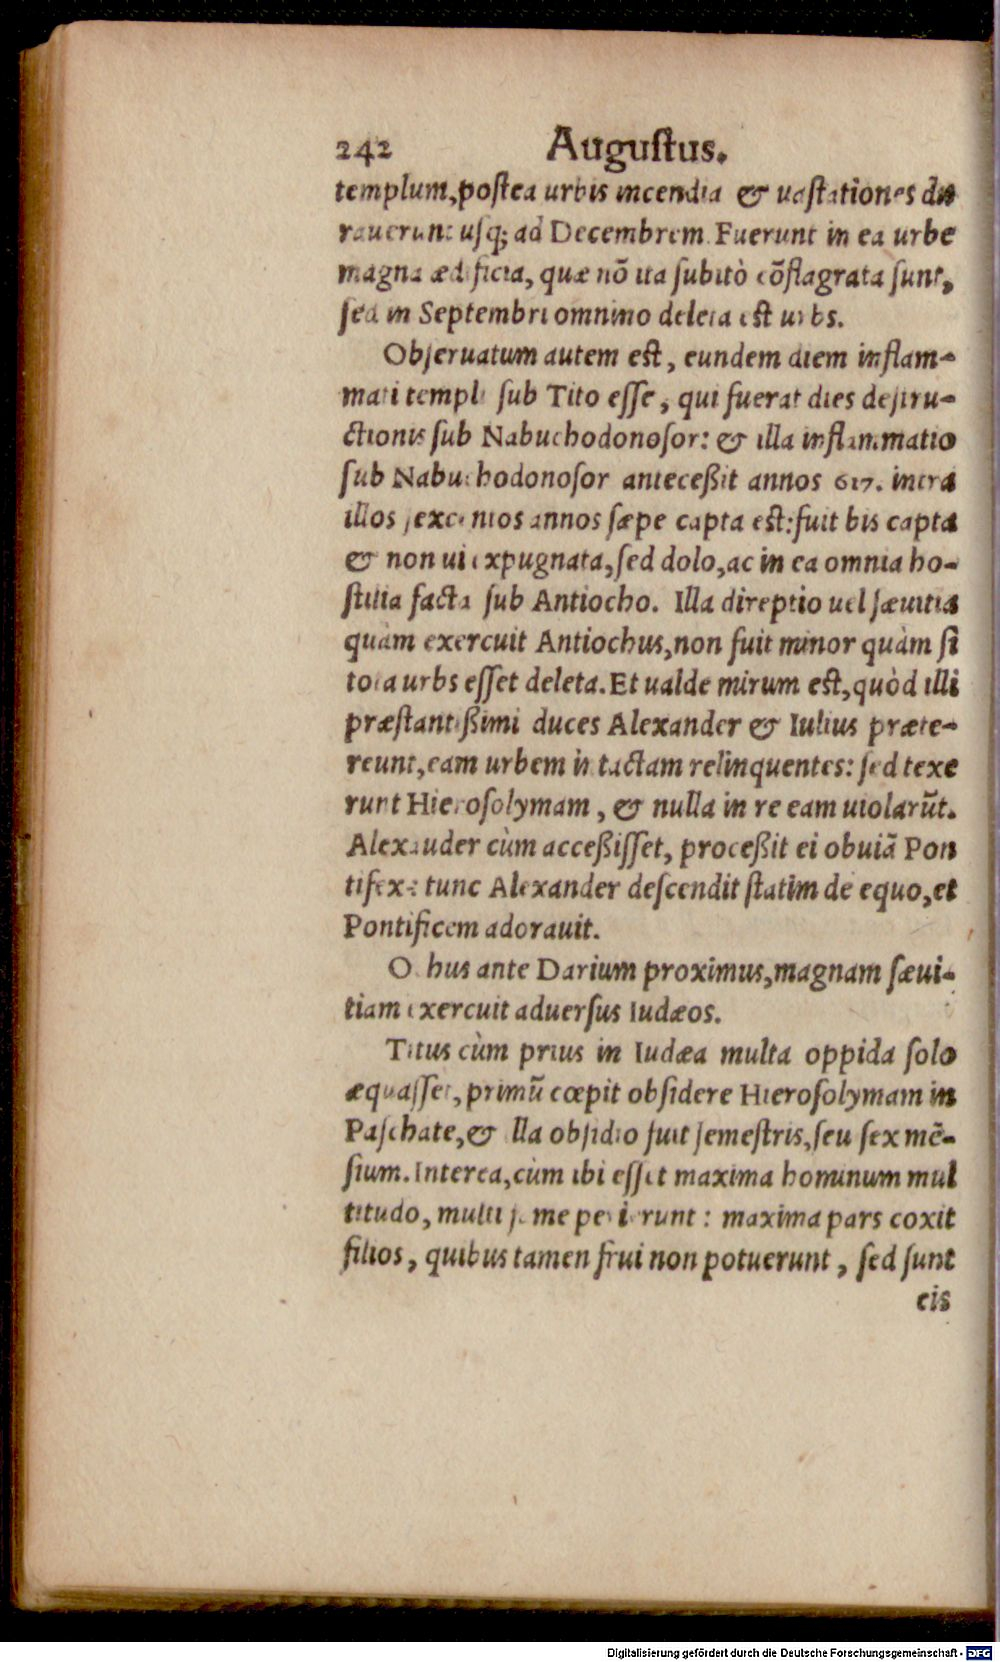 242 Augustus.
templum, postea urbis incendia & uastationes du
rauerunt usq; ad Decembrem. Fuerunt in ea urbe
magna ædificia, quæ nō ita subitò cōflagrata sunt,
sed in Septembri omnino deleta est urbs.
Obseruatum autem est, eundem diem inflam-
mati templi sub Tito esse, qui fuerat dies destru-
ctionis sub Nabuchodonosor: & illa inflammatio
sub Nabuchodonosor anteceßit annos 617. intra
illos sexcentos annos sæpe capta est: fuit bis capta
& non ui expugnata, sed dolo, ac in ea omnia ho-
stilia facta sub Antiocho. Illa direptio uel sæuitia
quàm exercuit Antiochus, non fuit minor quàm si
tota urbs esset deleta. Et ualde mirum est, quòd illi
præstantißimi duces Alexander & Iulius præte-
reunt, eam urbem intactam relinquentes: sed texe
runt Hierosolymam, & nulla in re eam uiolarūt.
Alexauder cùm acceßisset, proceßit ei obuiā Pon
tifex: tunc Alexander descendit statim de equo, et
Pontificem adorauit.
Ochus ante Darium proximus, magnam sæui-
tiam exercuit aduersus Iudæos.
Titus cùm prius in Iudæa multa oppida solo
æquasset, primū cœpit obsidere Hierosolymam in
Paschate, & illa obsidio fuit semestris, seu sex mē-
sium. Interea, cùm ibi esset maxima hominum mul
titudo, multi fame perierunt: maxima pars coxit
filios, quibus tamen frui non potuerunt, sed sunt
eis
Digitalisierung gefördert durch die Deutsche Forschungsgemeinschaft - DFG